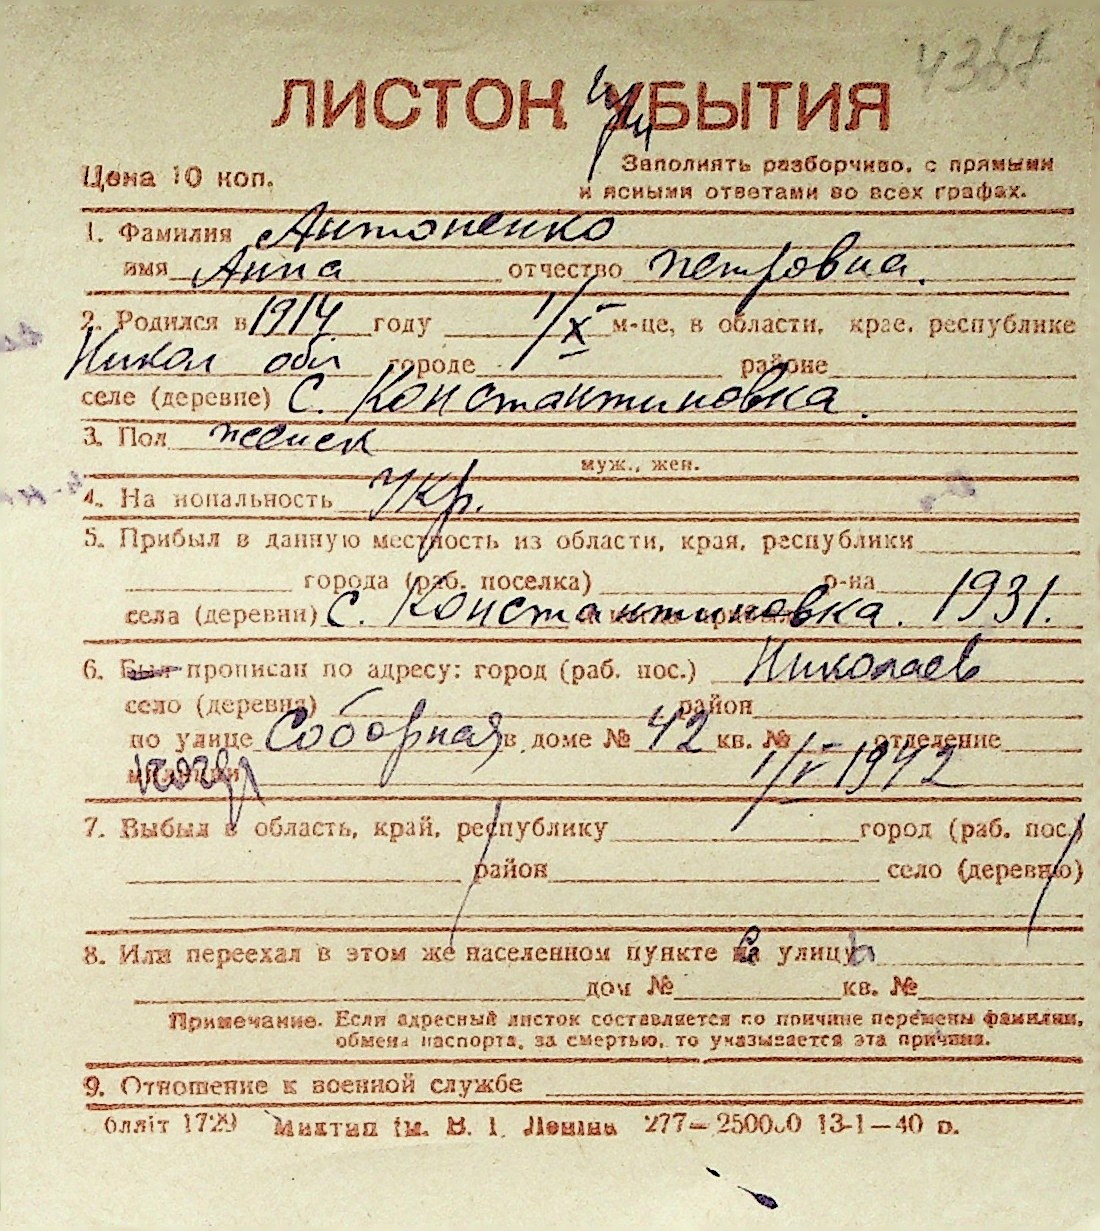 4367
ЛИСТОН при УБЫТИЯ
Цена 10 коп.
Заполнять разборчиво, с прямыми
и ясными ответами во всех графах.
1. Фамилия Антоненко
имя Анна отчество Петровна.
2. Родился в 1914 году 1/X м-це, в области, крае, республике
Никол обл городе районе
селе (деревне) с. Константиновка.
3. Пол женск
муж., жен.
4. На иональность Укр.
5. Прибыл в данную местность из области, края, республики
города (раб. поселка) р-на
села (деревни) с. Константиновка. 1931.
6. Был прописан по адресу: город (раб. пос.) Николаев
село (деревня) район
по улице Соборная в доме № 42 кв. № отделение
милиции 1/V 1942
7. Выбыл в область, край, республику город (раб. пос.)
район село (деревню)
8. Или переехал в этом же населенном пункте на улицу
дом № кв. №
Примечание. Если адресный листок составляется по причине перемены фамилии,
обмена паспорта, за смертью, то указывается эта причина.
9. Отношение к военной службе
блліт 1729 Миктип ім. В. І. Леніна 277—250000 13-1—40 р.